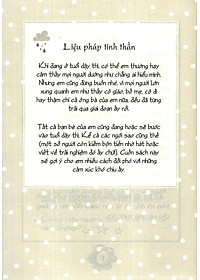 Liệu pháp tinh thần
Khi đang ở tuổi dậy thì, có thể em thường hay
cảm thấy mọi người dường như chẳng ai hiểu mình.
Nhưng em cũng đừng buồn nhé, vì mọi người lớn
xung quanh em như thầy cô giáo, bố mẹ, cô dì
hay thậm chí cả ông bà của em nữa, đều đã từng
trải qua giai đoạn ấy rồi.
Tất cả bạn bè của em cũng đang hoặc sẽ bước
vào tuổi dậy thì. Kể cả các ngôi sao cũng thế
(một số người còn kiếm bộn tiền nhờ hát hoặc
viết về trải nghiệm đó ấy chứ). Cuốn sách này
sẽ gợi ý cho em nhiều cách đối phó với những
cảm xúc khó chịu ấy.